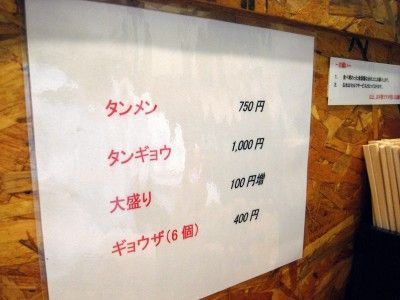 タンメン 750円
タンギョウ 1,000円
大盛り 100円増
ギョウザ(6個) 400円